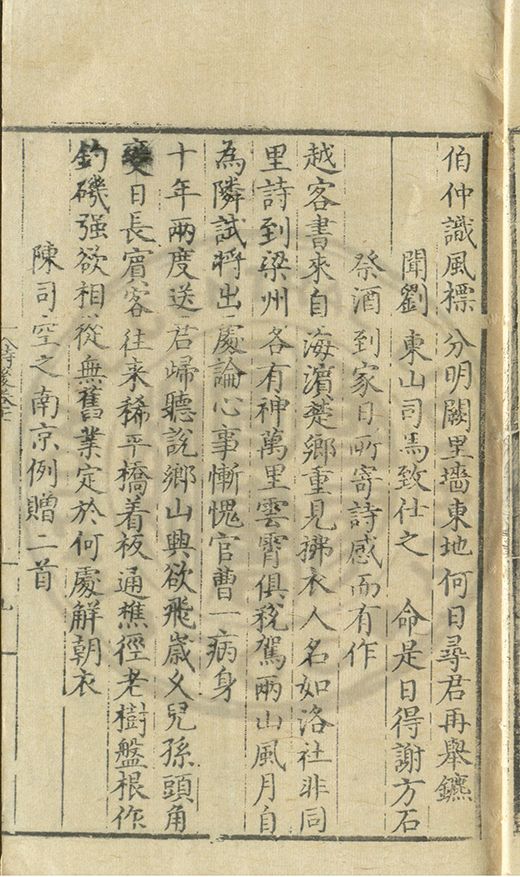 伯仲識風標分明闕里墻東地何日尋君再舉鑣
聞劉東山司馬致仕之 命是日得謝方石
祭酒到家日所寄詩感而有作
越客書來自海濵楚鄉重見拂衣人名如洛社非同
里詩到梁州各有神萬里雲霄俱稅駕兩山風月自
為隣試將出處論心事慚愧官曹一病身
十年兩度送君歸聽說鄉山興欲飛歲久兒孫頭角
變日長賓客往来稀平橋着板通樵徑老樹盤根作
釣磯强欲相從無舊業定於何處解朝衣
陳司空之南京例贈二首